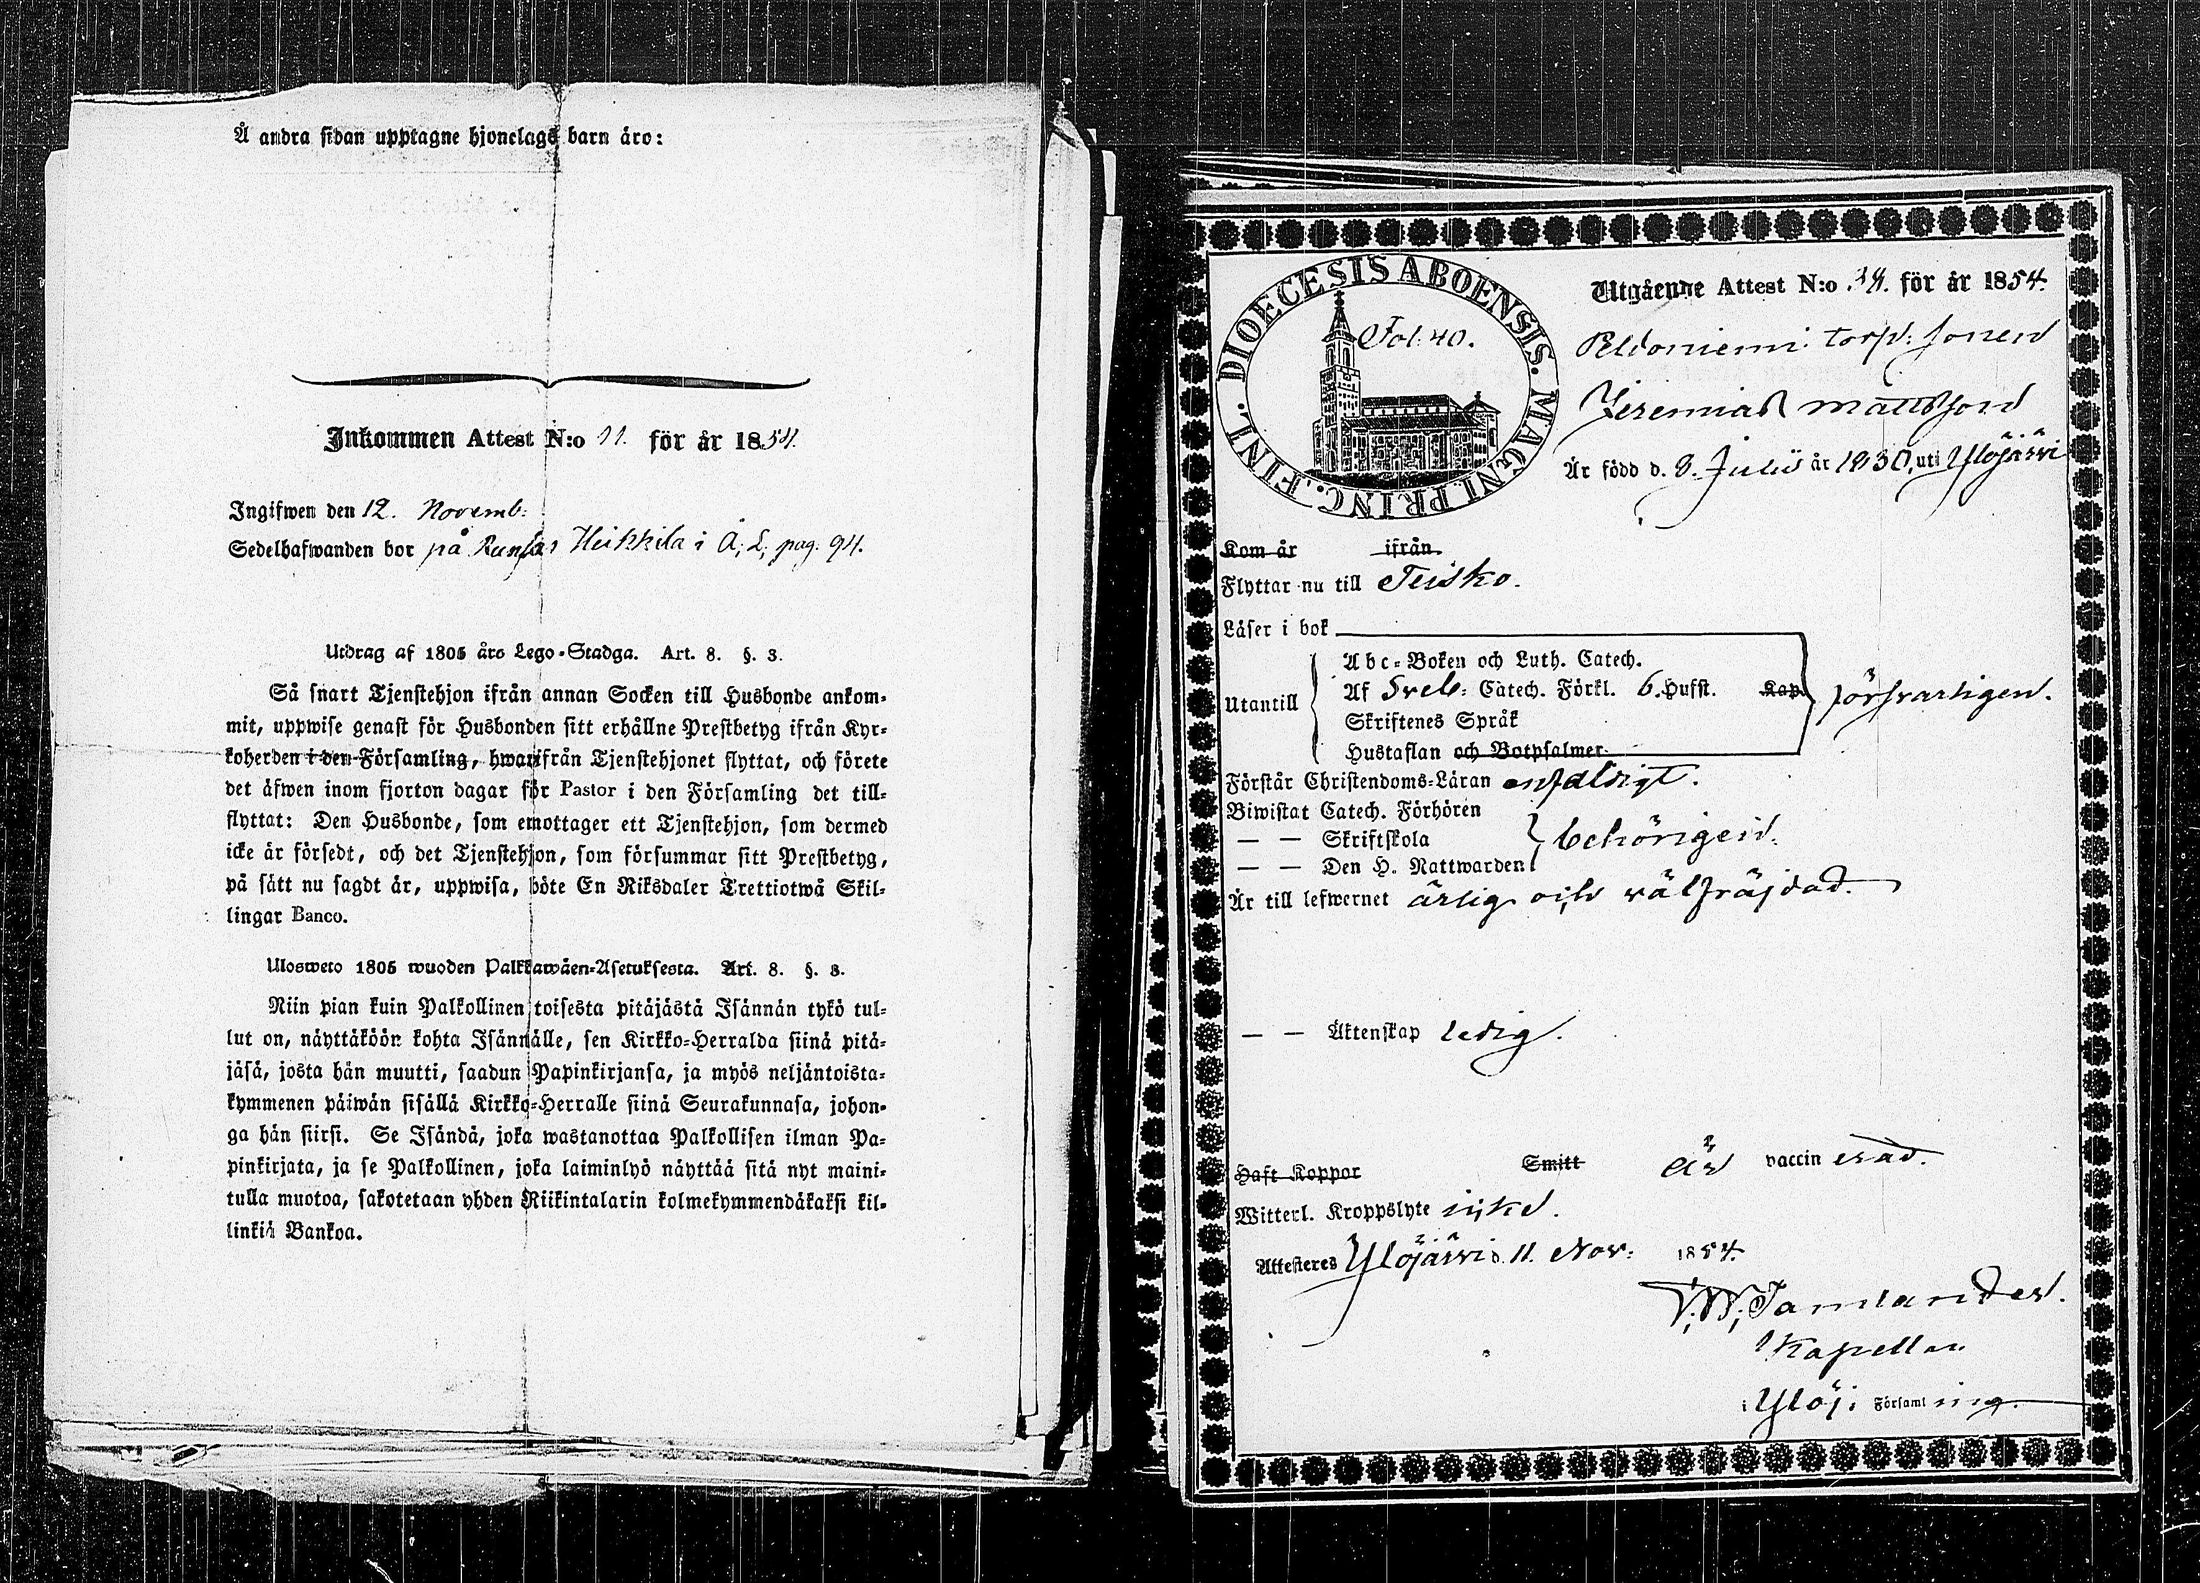 Å andra sidan upptagne hjonelags barn äro:
Inkommen Attest N:o 11. för år 1854.
Ingifwen den 12. Novemb:
Sedelhafwanden bor på Heikkilä i Å; L; pag. 94.
Utdrag af 1805 års Lego-Stadga. Art. 8. §. 3.
Så snart Tjenstehjon ifrån annan Socken till Husbonde ankom-
mit, uppwise genast för Husbonden sitt erhållne Prestbetyg ifrån Kyr-
koherden i den Församling, hwarifrån Tjenstehjonet flyttat, och förete
det äfwen inom fjorton dagar för Pastor i den Församling det till-
flyttat: Den Husbonde, som emottager ett Tjenstehjon, som dermed
icke är försedt, och det Tjenstehjon, som försummar sitt Prestbetyg,
på sätt nu sagdt är, uppwisa, böte En Riksdaler Trettiotwå Skil-
lingar Banco.
Ulosweto 1805 wuoden Palkkawäen-Asetuksesta. Art. 8. §. 3.
Niin pian kuin Palkollinen toisesta pitäjästä Isännän tykö tul-
lut on, näyttäköön kohta Isännälle, sen Kirkko-Herralda siinä pitä-
jäsä, josta hän muutti, saadun Papinkirjansa, ja myös neljäntoista-
kymmenen päiwän sisällä Kirkko-Herralle siinä Seurakunnasa, johon-
ga hän siirsi. Se Isändä, joka wastanottaa Palkollisen ilman Pa-
pinkirjata, ja se Palkollinen, joka laiminlyö näyttää sitä nyt maini-
tulla muotoa, sakotetaan yhden Riikintalarin kolmekymmendäkaksi kil-
linkiä Bankoa.
DIOECESIS ABOENSIS. MAGNI. PRINC. FINL.
Fol: 40.
Utgående Attest N:o för år 1854.
Peldoniemi torp: sonen
Jeremias Mattsson
Är född d. 8. Julii år 1830, uti Ylöjärvi
Kom år ifrån
Flyttar nu till Teisko.
Läser i bok
Utantill
Abc-Boken och Luth. Catech.
Af Sveb: Catech. Förkl. 6. Hufst. Kap.
Skriftenes Språk
Hustaflan och Botpsalmer.
försvarligen.
Förstår Christendoms-Läran enfaldigt.
Biwistat Catech. Förhören
— — Skriftskola
— — Den H. Nattwarden
behörigen.
Är till lefwernet ärlig och välfräjdad.
— — Äktenskap ledig.
Haft Koppor Smitt är vaccinerad.
Witterl. Kroppslyte icke.
Attesteres Ylöjärvi d. 11. Nov: 1854.
Kapellan
i Ylöj: Församling.